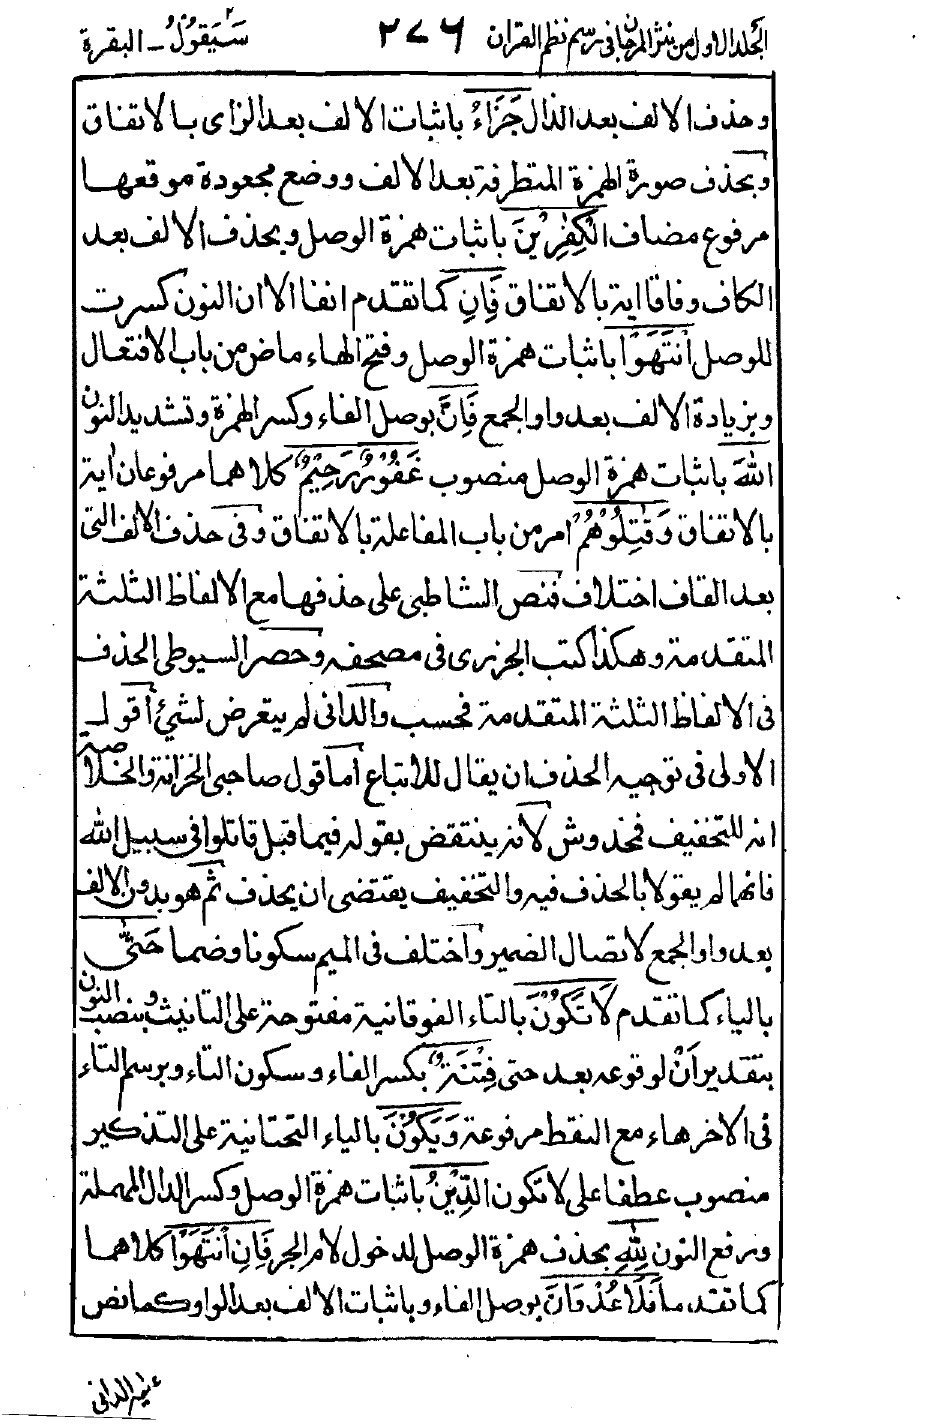 الجلد الاول من نثر المرجان فى رسم نظم القران ٢٧٦ سَيَقُولُ ـ البقرة
وحذف الالف بعد الذال جَزَاءُ باثبات الالف بعد الزاى بالاتفاق
وبحذف صورة الهمزة المتطرفة بعد الالف ووضع مجعودة موقعها
مرفوع مضاف الْكٰفِرِيْنَ باثبات همزة الوصل وبحذف الالف بعد
الكاف وفاقا اية بالاتفاق فَاِنِ كما تقدم انفا الا ان النون كسرت
للوصل انْتَهَوْا باثبات همزة الوصل وفتح الهاء ماض من باب الافتعال
وبزيادة الالف بعد واو الجمع فَاِنَّ بوصل الفاء وكسر الهمزة وتشديد النون
اللّٰهَ باثبات همزة الوصل منصوب غَفُوْرٌ رَّحِيْمٌ كلاهما مرفوعان اية
بالاتفاق وَقٰتِلُوْهُمْ امر من باب المفاعلة بالاتفاق وفى حذف الالف التى
بعد القاف اختلاف فنص الشاطبى على حذفها مع الالفاظ الثلثة
المتقدمة وهكذا كتب الجزرى فى مصحفه وحصر السيوطى الحذف
فى الالفاظ الثلثة المتقدمة فحسب والدانى لم يتعرض لشئ أقول
الاولى فى توجيه الحذف ان يقال للاتباع أما قول صاحبى الخزانة والخلاصة
انه للتخفيف فمخدوش لانه ينتقض بقوله فيما قبل قاتلوا فى سبيل الله
فانهما لم يقولا بالحذف فيه والتخفيف يقتضى ان يحذف ثم هو بدون الالف
بعد واو الجمع لاتصال الضمير واختلف فى الميم سكونا وضما حَتّٰى
بالياء كما تقدم لَا تَكُوْنَ بالتاء الفوقانية مفتوحة على التانيث وبنصب النون
بتقدير اَنْ لوقوعه بعد حتى فِتْنَةٌ بكسر الفاء وسكون التاء وبرسم التاء
فى الاخر هاء مع النقط مرفوعة وَيَكُوْنَ بالياء التحتانية على التذكير
منصوب عطفا على لا تكون الدِّيْنُ باثبات همزة الوصل وكسر الدال المهملة
ورفع النون لِلّٰهِ بحذف همزة الوصل لدخول لام الجر فَاِنِ انْتَهَوْا كلاهما
كما تقدما فَلَا عُدْوَانَ بوصل الفاء وباثبات الالف بعد الواو كما نص
عليه الدانى